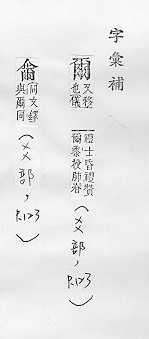 字彙補
爾 又移也儀禮士昏禮贊爾黍授肺脊 (爻部, P.123)
與爾同 (爻部, P.123)